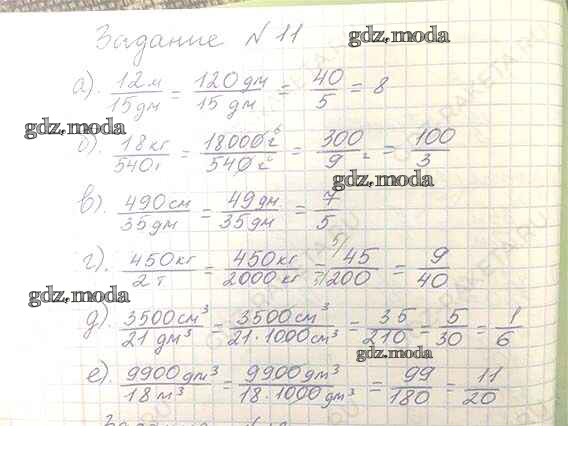 Задание N 11
gdz.moda
а). 12м/15дм = 120 дм/15 дм = 40/5 = 8
gdz.moda
б). 18кг/540г = 18000г/540г = 300/9 = 100/3
gdz.moda
в). 490см/35дм = 49дм/35дм = 7/5
г). 450кг/2т = 450кг/2000кг = 45/200 = 9/40
gdz.moda
д). 3500см³/21дм³ = 3500см³/21·1000см³ = 35/210 = 5/30 = 1/6
gdz.moda
е). 9900дм³/18м³ = 9900дм³/18·1000дм³ = 99/180 = 11/20